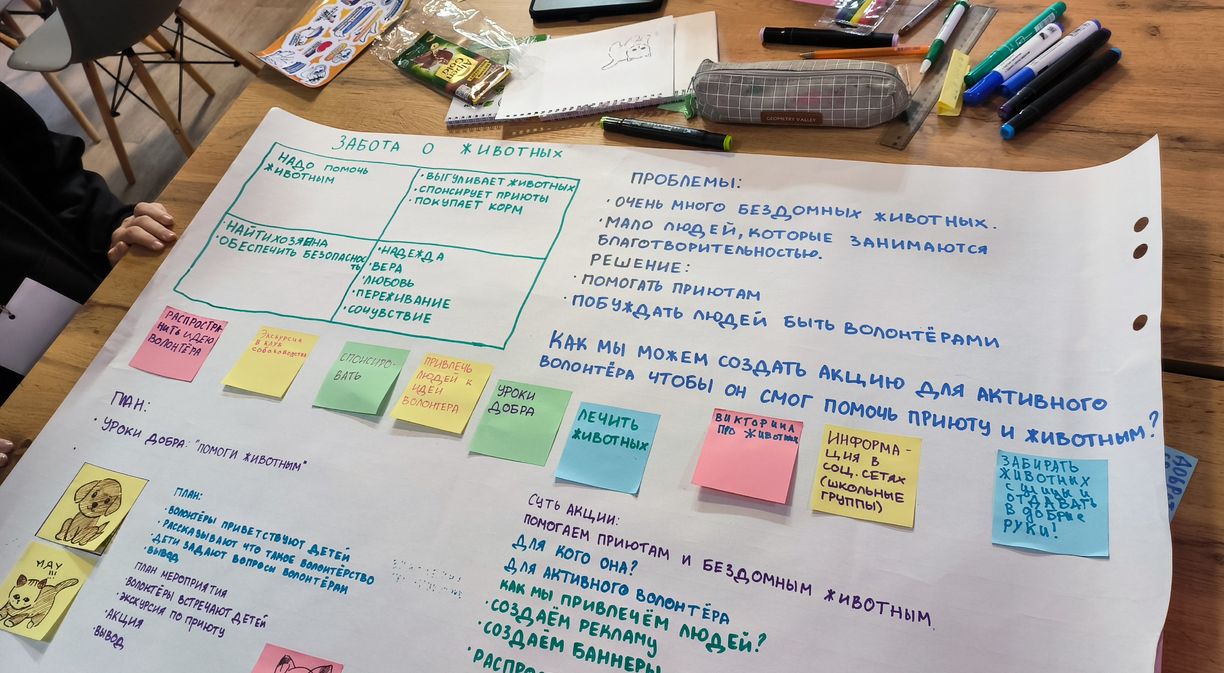 ЗАБОТА О ЖИВОТНЫХ
НАДО ПОМОЧЬ
ЖИВОТНЫМ
• ВЫГУЛИВАЕТ ЖИВОТНЫХ
• СПОНСИРУЕТ ПРИЮТЫ
• ПОКУПАЕТ КОРМ
• НАЙТИ ХОЗЯИНА
• ОБЕСПЕЧИТЬ БЕЗОПАСНОС
ТЬ
• НАДЕЖДА
• ВЕРА
• ЛЮБОВЬ
• ПЕРЕЖИВАНИЕ
• СОЧУВСТВИЕ
ПРОБЛЕМЫ:
• ОЧЕНЬ МНОГО БЕЗДОМНЫХ ЖИВОТНЫХ.
• МАЛО ЛЮДЕЙ, КОТОРЫЕ ЗАНИМАЮТСЯ
БЛАГОТВОРИТЕЛЬНОСТЬЮ.
РЕШЕНИЕ:
• ПОМОГАТЬ ПРИЮТАМ
• ПОБУЖДАТЬ ЛЮДЕЙ БЫТЬ ВОЛОНТЁРАМИ
КАК МЫ МОЖЕМ СОЗДАТЬ АКЦИЮ ДЛЯ АКТИВНОГО
ВОЛОНТЁРА ЧТОБЫ ОН СМОГ ПОМОЧЬ ПРИЮТУ И ЖИВОТНЫМ?
РАСПРОСТРА
НИТЬ ИДЕЮ
ВОЛОНТЁРА
ЭКСКУРСИЯ
В КЛУБ
СОБАКОВОДСТВА
СПОНСИРО-
ВАТЬ
ПРИВЛЕЧЬ
ЛЮДЕЙ К
ИДЕИ
ВОЛОНТЕРА
УРОКИ
ДОБРА
ЛЕЧИТЬ
ЖИВОТНЫХ
ВИКТОРИНА
ПРО ЖИВОТНЫХ
ИНФОРМА-
ЦИЯ В
СОЦ. СЕТЯХ
(ШКОЛЬНЫЕ
ГРУППЫ)
ЗАБИРАТЬ
ЖИВОТНЫХ
С УЛИЦЫ И
ОТДАВАТЬ
В ДОБРЫЕ
РУКИ!
ПЛАН:
• УРОКИ ДОБРА: "ПОМОГИ ЖИВОТНЫМ"
МЯУ
!!!
ПЛАН:
• ВОЛОНТЁРЫ ПРИВЕТСТВУЮТ ДЕТЕЙ
• РАССКАЗЫВАЮТ ЧТО ТАКОЕ ВОЛОНТЁРСТВО
• ДЕТИ ЗАДАЮТ ВОПРОСЫ ВОЛОНТЁРАМ
• ВЫВОД
ПЛАН МЕРОПРИЯТИЯ
• ВОЛОНТЁРЫ ВСТРЕЧАЮТ ДЕТЕЙ
• ЭКСКУРСИЯ ПО ПРИЮТУ
• АКЦИЯ
• ВЫВОД
СУТЬ АКЦИИ:
ПОМОГАЕМ ПРИЮТАМ И БЕЗДОМНЫМ ЖИВОТНЫМ.
ДЛЯ КОГО ОНА?
ДЛЯ АКТИВНОГО ВОЛОНТЁРА
КАК МЫ ПРИВЛЕЧЁМ ЛЮДЕЙ?
• СОЗДАЁМ РЕКЛАМУ
• СОЗДАЁМ БАННЕРЫ
GEOMETRY VALLEY